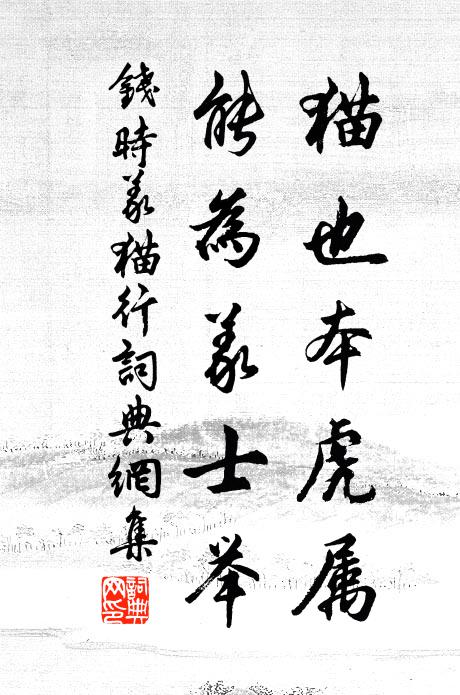 猫也本虎属
能為义士举
錢時义猫行詞典網集
詞典网印